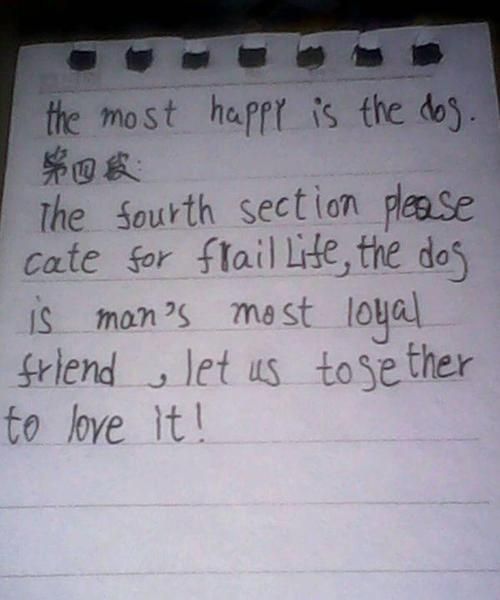 the most happy is the dog.
第四段:
The fourth section please
cate for frail Life, the dog
is man's most loyal
friend, let us together
to love it!